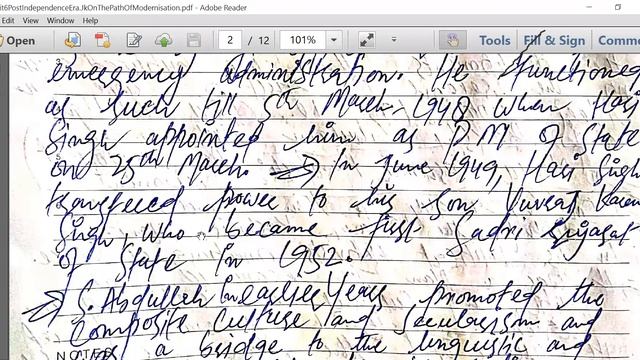 it6PostIndependenceEra.JkOnThePathOfModernisation.pdf - Adobe Reader
Edit View Window Help
Open 2 / 12 101% Tools Fill & Sign Comme
emergency administration. He functioned
as such till 5th March, 1948 when Hari
Singh appointed him as PM of State
on 25th March. In June 1949, Hari Singh
transfered power to his son Yuvraj Karan
Singh, who became first Sadri Riyasat
of State in 1952.
S. Abdullah in earlier years promoted the
composite culture and secularism and
NOTES a bridge to the linguistic and